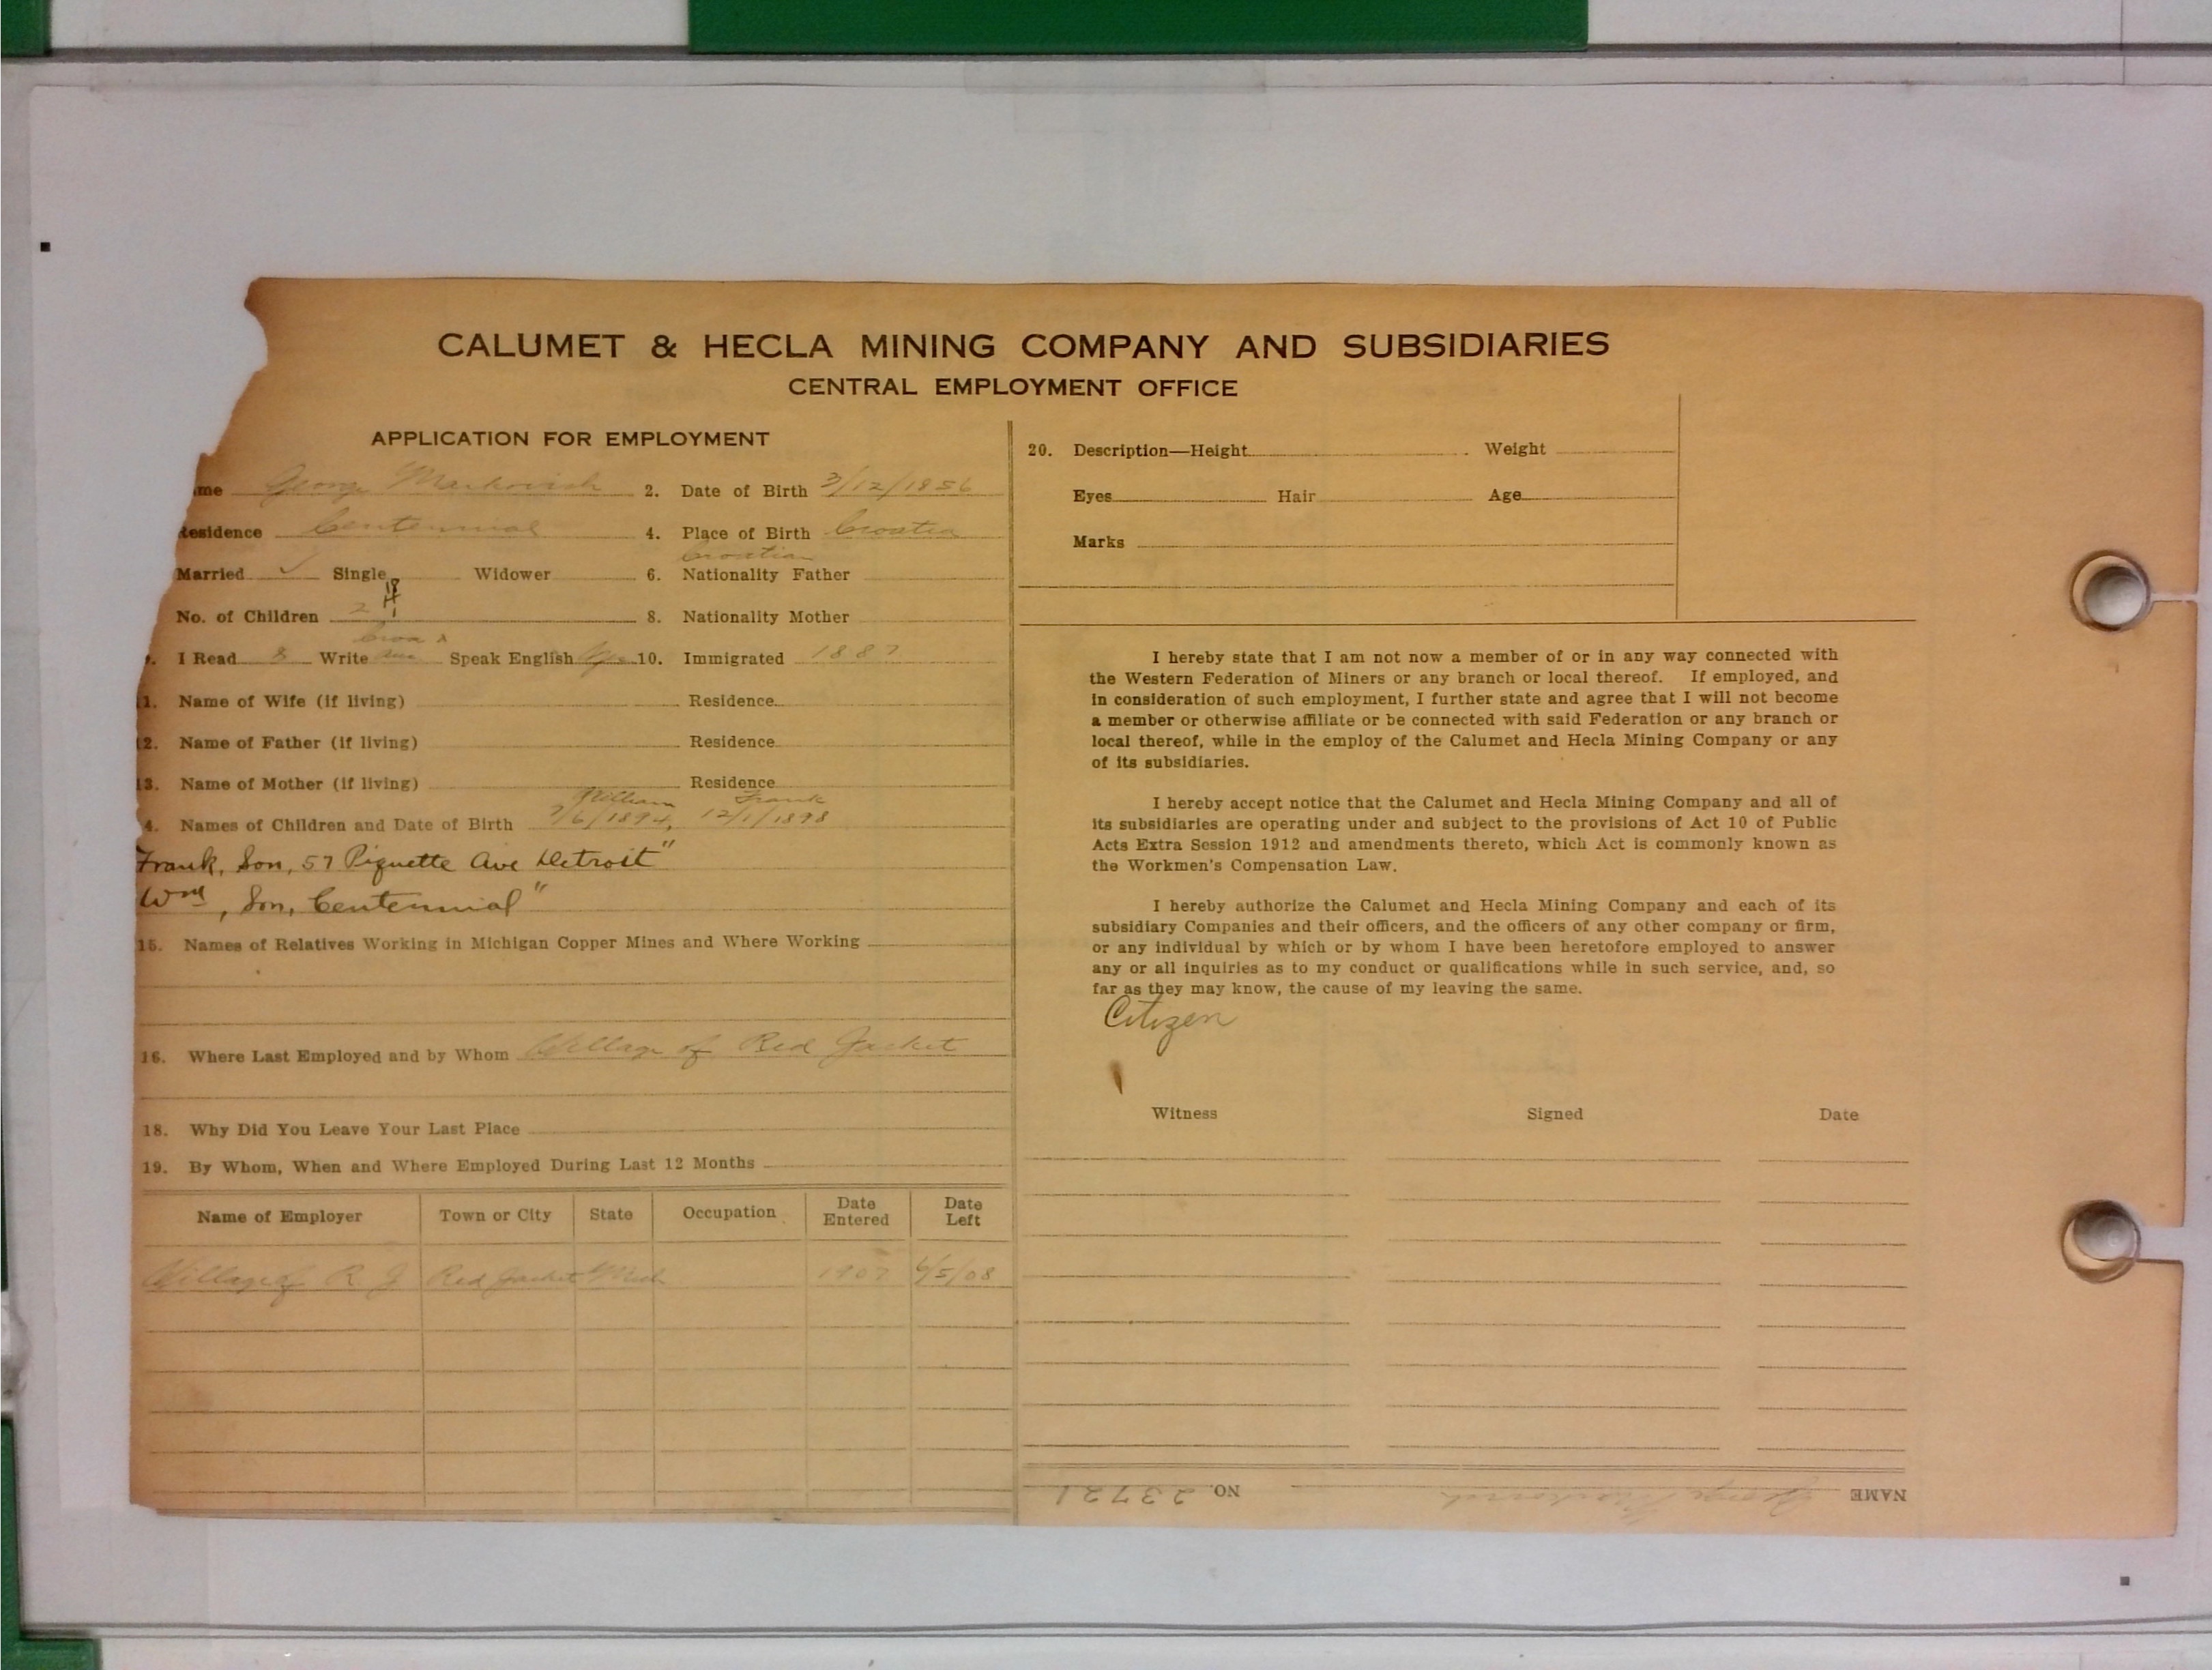 CALUMET & HECLA MINING COMPANY AND SUBSIDIARIES
CENTRAL EMPLOYMENT OFFICE
APPLICATION FOR EMPLOYMENT
me George Markovich 2. Date of Birth 3/12/1856
Residence Centennial 4. Place of Birth Croatia
Croatian
Married ✓ Single Widower 6. Nationality Father
No. of Children 2 8. Nationality Mother
I Read Write Speak English Yes 10. Immigrated 1887
11. Name of Wife (if living) Residence
12. Name of Father (if living) Residence
13. Name of Mother (if living) Residence
William Frank
4. Names of Children and Date of Birth 7/6/1894, 12/1/1898
Frank, Son, 57 Piquette Ave Detroit"
Wm, Son, Centennial"
15. Names of Relatives Working in Michigan Copper Mines and Where Working
16. Where Last Employed and by Whom Village of Red Jacket
18. Why Did You Leave Your Last Place
19. By Whom, When and Where Employed During Last 12 Months
Name of Employer Town or City State Occupation Date Entered Date Left
Village of R J Red Jacket Mich 1907 6/5/08
20. Description—Height Weight
Eyes Hair Age
Marks
I hereby state that I am not now a member of or in any way connected with
the Western Federation of Miners or any branch or local thereof. If employed, and
in consideration of such employment, I further state and agree that I will not become
a member or otherwise affiliate or be connected with said Federation or any branch or
local thereof, while in the employ of the Calumet and Hecla Mining Company or any
of its subsidiaries.
I hereby accept notice that the Calumet and Hecla Mining Company and all of
its subsidiaries are operating under and subject to the provisions of Act 10 of Public
Acts Extra Session 1912 and amendments thereto, which Act is commonly known as
the Workmen's Compensation Law.
I hereby authorize the Calumet and Hecla Mining Company and each of its
subsidiary Companies and their officers, and the officers of any other company or firm,
or any individual by which or by whom I have been heretofore employed to answer
any or all inquiries as to my conduct or qualifications while in such service, and, so
far as they may know, the cause of my leaving the same.
Citizen
Witness Signed Date
NAME George Markovich NO. 23721